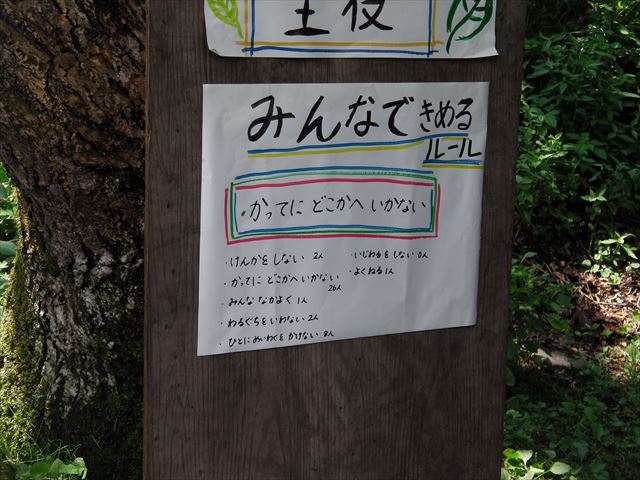 主役
みんなできめる
ルール
・かってに どこかへ いかない
・けんかを しない 2人
・かってに どこかへ いかない
26人
・みんな なかよく 1人
・わるぐちを いわない 2人
・ひとに めいわくを かけない 8人
・いじわるを しない 0人
・よくねる 1人